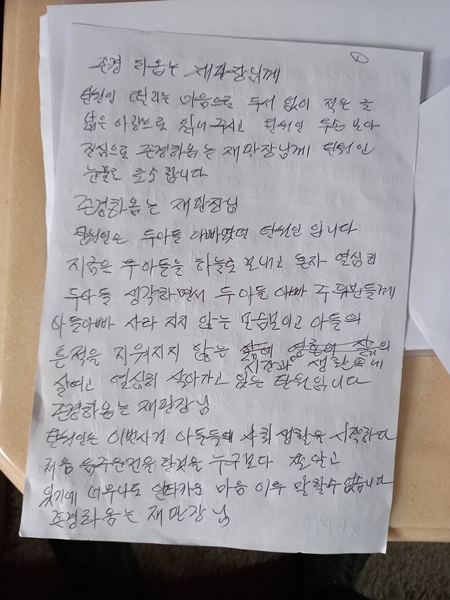 ①
존경 하옵는 재판장님께
탄원인 떨리는 마음으로 두서 없이 적은 글
넓은 아량으로 읽어 주시고 탄원인 무엇보다
진심으로 존경하옵는 재판장님께 탄원인
눈물로 호소 합니다
존경하옵는 재판장님
탄원인은 두아들 아빠였던 탄원인 입니다
지금은 두아들을 하늘로 보내고 혼자 열심히
두아들 생각하면서 두아들 아빠 주위분들께
아들아빠 사라 지지 않는 모습보이고 아들의
흔적을 지워지지 않는 시간과 생활
살려고 열심히 살아가고 있는 탄원인입니다
존경하옵는 재판장님
탄원인은 이번사건 아들들 사회 생활을 시작하다
처음 음주운전을 한것을 누구보다 잘 알고
있기에 너무나도 안타까운 마음 이루 말할수 없습니다
존경하옵는 재판장님